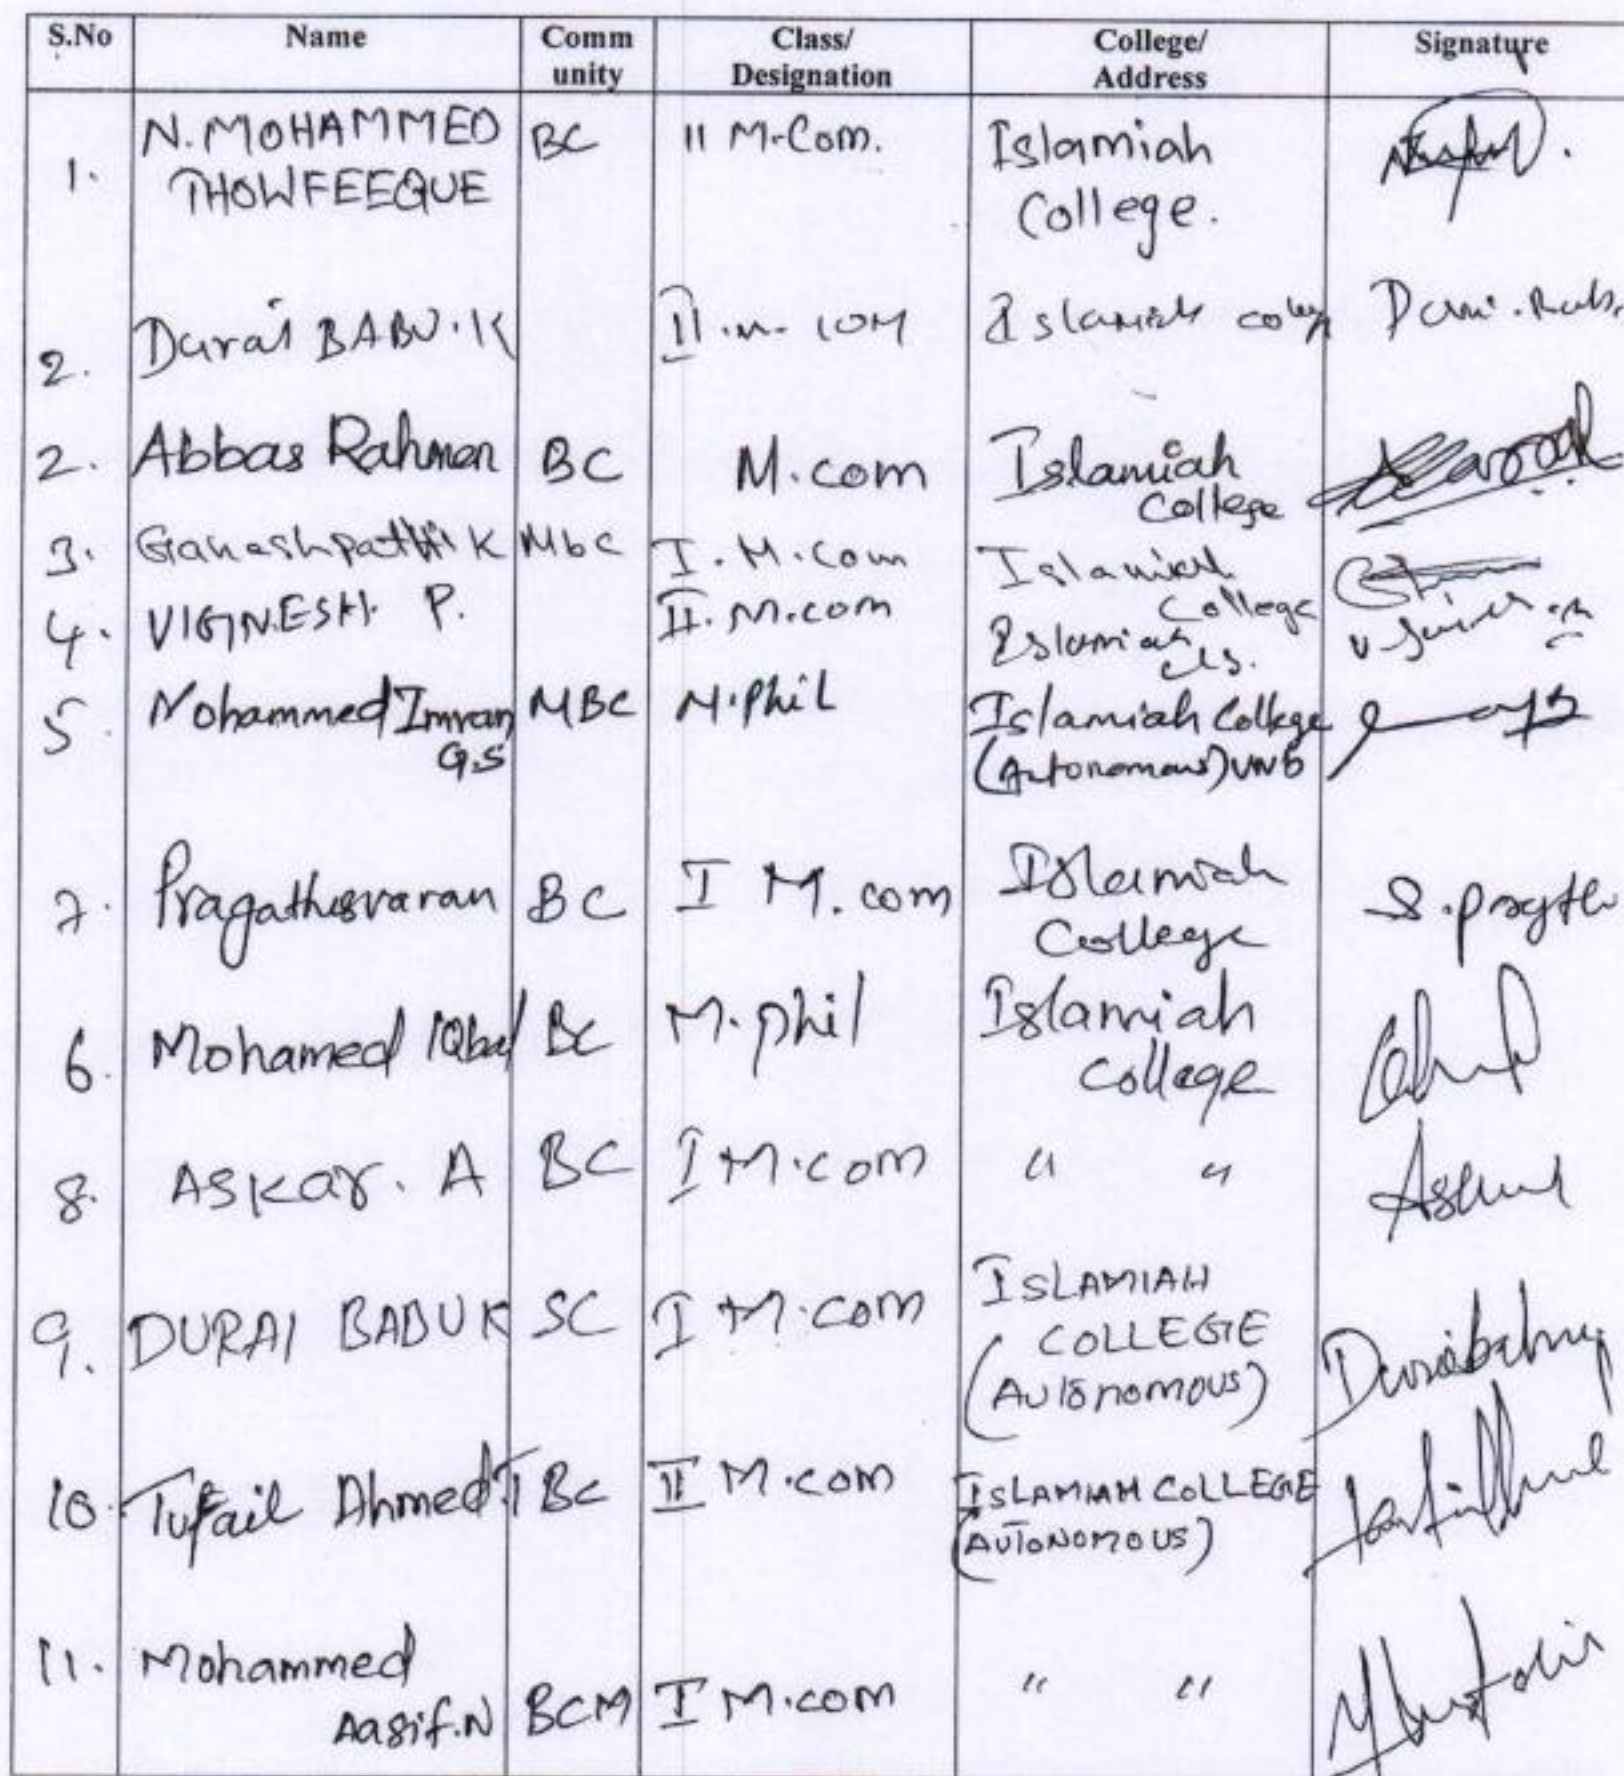 S.No Name Comm unity Class/ Designation College/ Address Signature
1. N. MOHAMMED THOWFEEQUE BC II M.Com. Islamiah College.
2. Durai BABU.K II.M.COM Islamiah
2. Abbas Rahman BC M.com Islamiah College
3. Ganeshpathi K Mbc I.M.com Islamiah College
4. VIGNESH P. II.M.com Islamiah
5 Mohammed Imran G.S MBC M.Phil Islamiah College (Autonomous) VNB
7. Pragatheesvaran BC I M.com Islamiah College
6. Mohamed IQbal BC M.phil Islamiah College
8. ASkar. A BC I M.com " "
9. DURAI BABU K SC I M.com ISLAMIAH COLLEGE (AUTonomous) Duraibabu
10 Tufail Ahmed.T BC II M.com ISLAMIAH COLLEGE (AUTONOMOUS)
11. Mohammed Aasif.N BCM I M.com " "